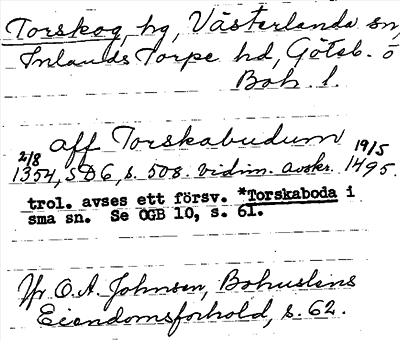 Torskog, hg, Västerlanda sn,
Inlands Torpe hd, Göteb. o
Boh l.
aff Torskabudum
2/8 1354, SD 6, s. 508. vidim. avskr. 19/5 1495.
trol. avses ett försv. *Torskaboda i
sma sn. Se OGB 10, s. 61.
Jfr O.A. Johnsen, Bohusläns
Eiendomsforhold, s. 62.